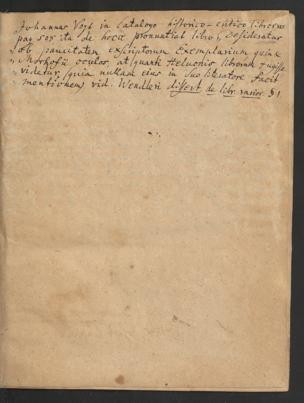 Johannes Vogt in Catalogo historico-critico librorum
pag 505 ita de hoc pronuntiat libro, desideratur
ob paucitatem exscriptorum Exemplarium quin &
Morhofii oculos, at quanti Helluonis librorum fugisse
videtur, quia nullam eius in suo literatore facit
mentionem vid. Wendleri dissert de libr. rarior. § 1